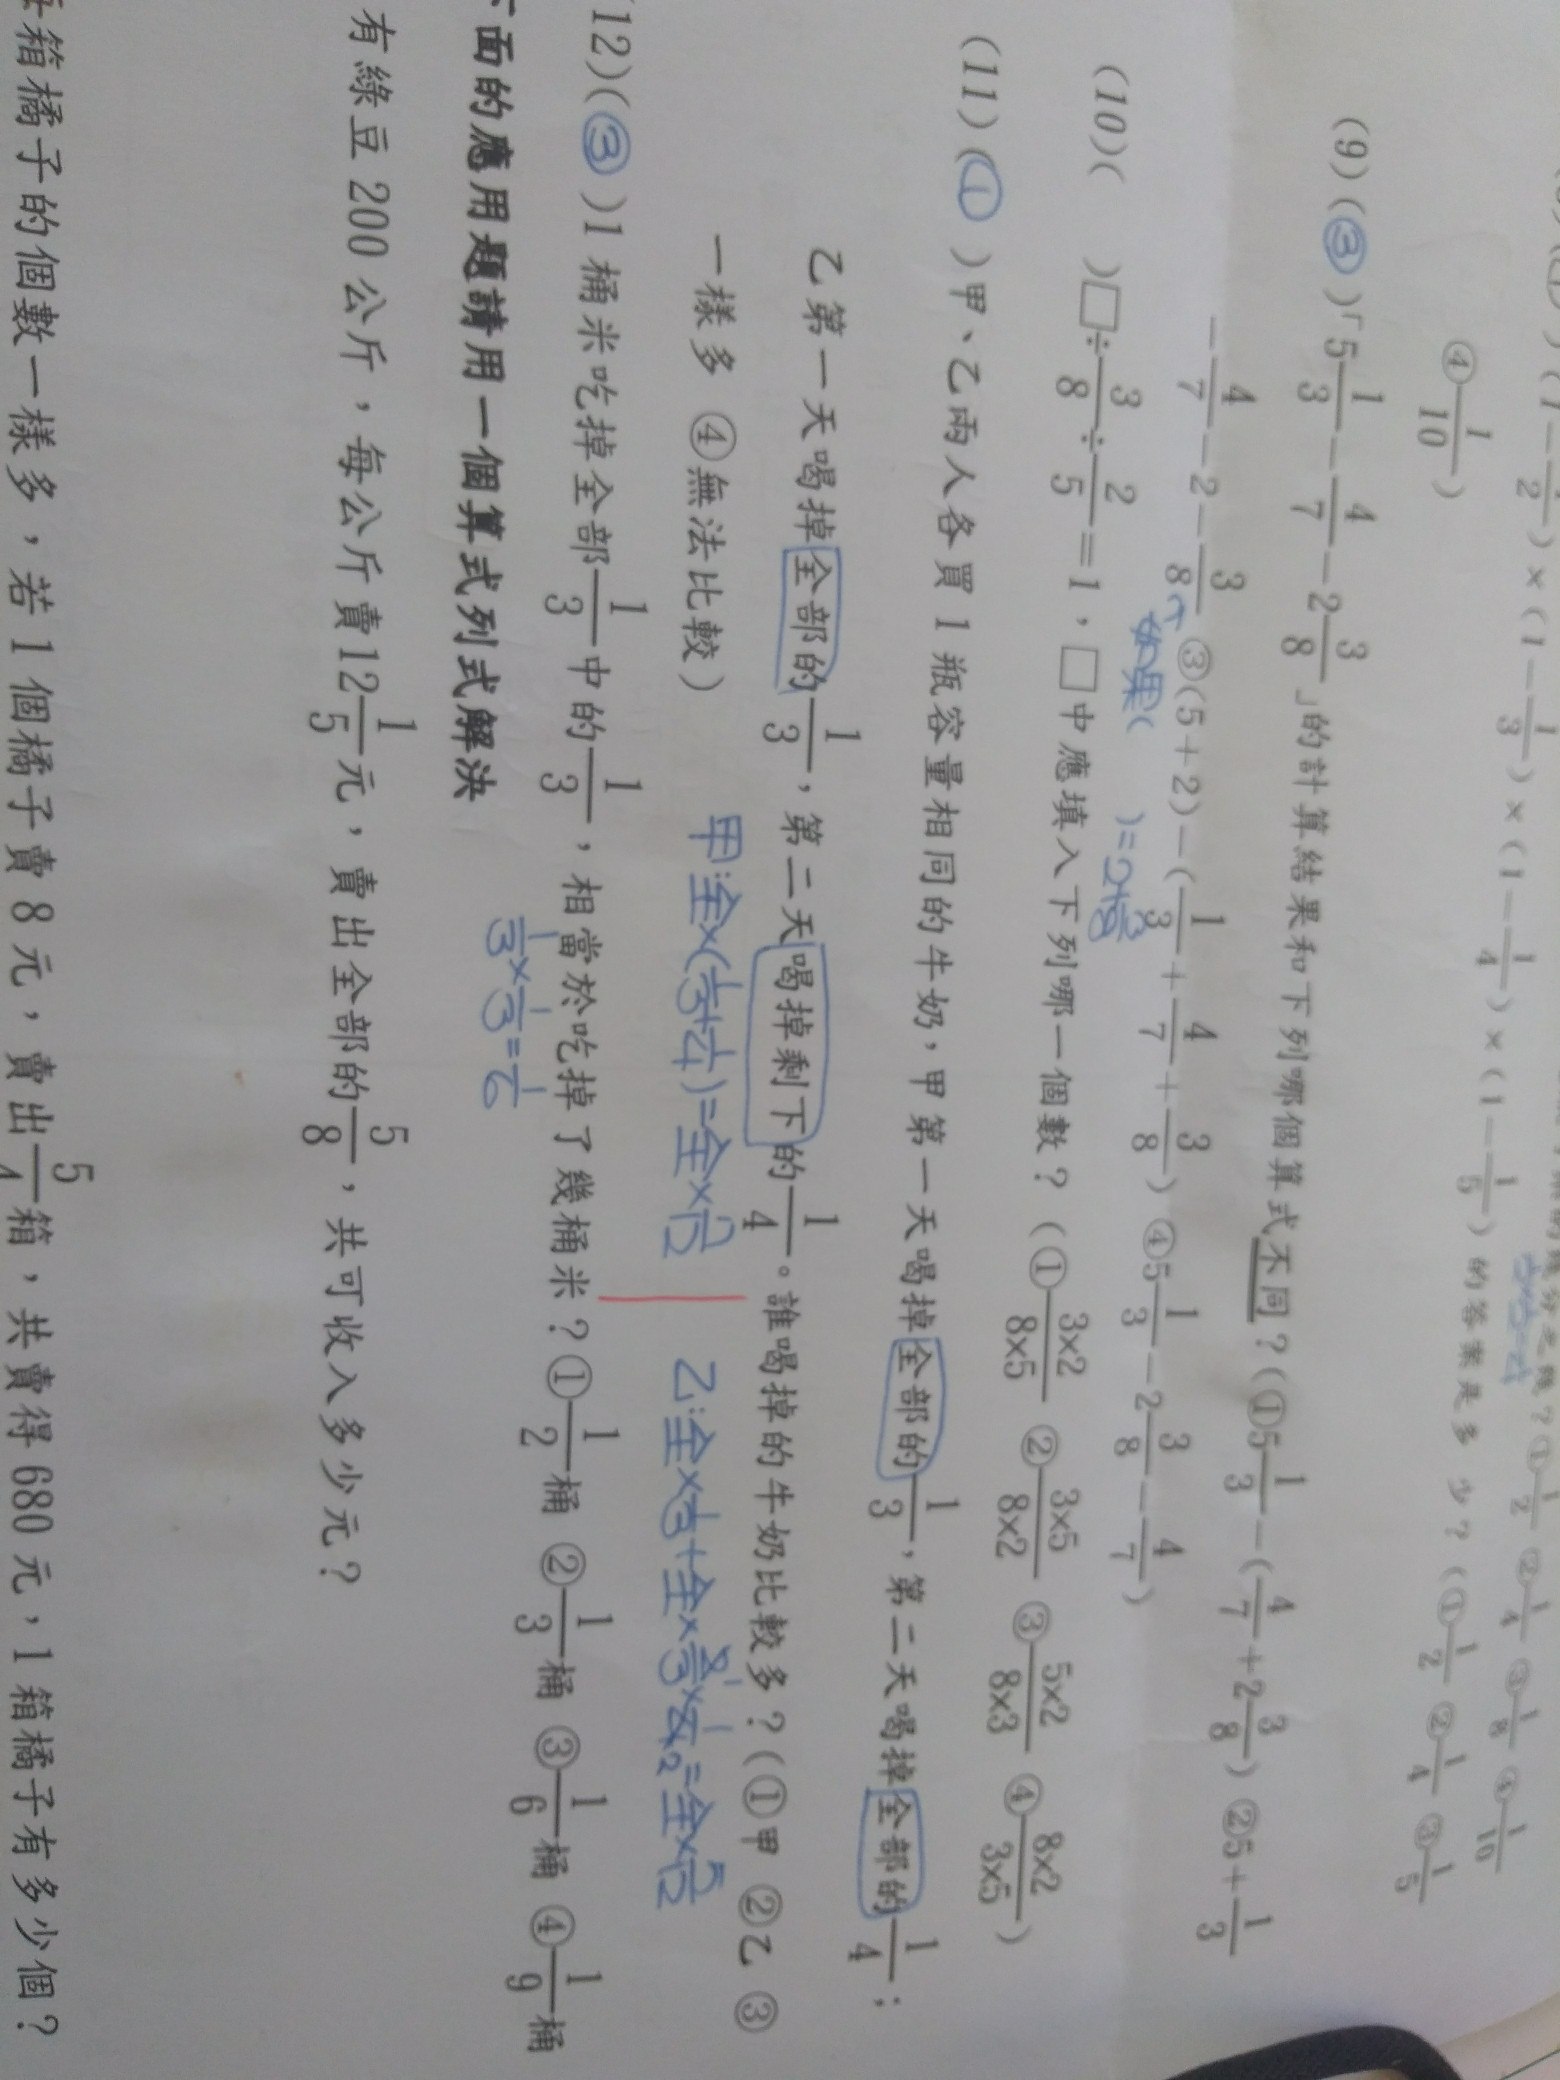 (1-1/2)×(1-1/3)×(1-1/4)×(1-1/5)的答案是多少?(①1/2 ②1/4 ③1/5
④1/10)
(9)(③)「5 1/3-4/7-2 3/8」的計算結果和下列哪個算式不同?(①5 1/3-(4/7+2 3/8) ②5+1/3
-4/7-2-3/8 ③(5+2)-(1/3+4/7+3/8) ④5 1/3-2 3/8-4/7)
如果( )=2+3/8
(10)( )□÷3/8÷2/5=1,□中應填入下列哪一個數?(①3×2/8×5 ②3×5/8×2 ③5×2/8×3 ④8×2/3×5)
(11)(①)甲、乙兩人各買1瓶容量相同的牛奶,甲第一天喝掉全部的1/3,第二天喝掉全部的1/4;
乙第一天喝掉全部的1/3,第二天喝掉剩下的1/4。誰喝掉的牛奶比較多?(①甲 ②乙 ③
一樣多 ④無法比較)
甲:全×(1/3+1/4)=全×7/12
乙:全×1/3+全×2/3×1/4=全×5/12
12)(③)1桶米吃掉全部1/3中的1/3,相當於吃掉了幾桶米?①1/2桶 ②1/3桶 ③1/6桶 ④1/9桶
1/3×1/3=1/6
面的應用題請用一個算式列式解決
有綠豆200公斤,每公斤賣12 1/5元,賣出全部的5/8,共可收入多少元?
箱橘子的個數一樣多,若1個橘子賣8元,賣出5/4箱,共賣得680元,1箱橘子有多少個?